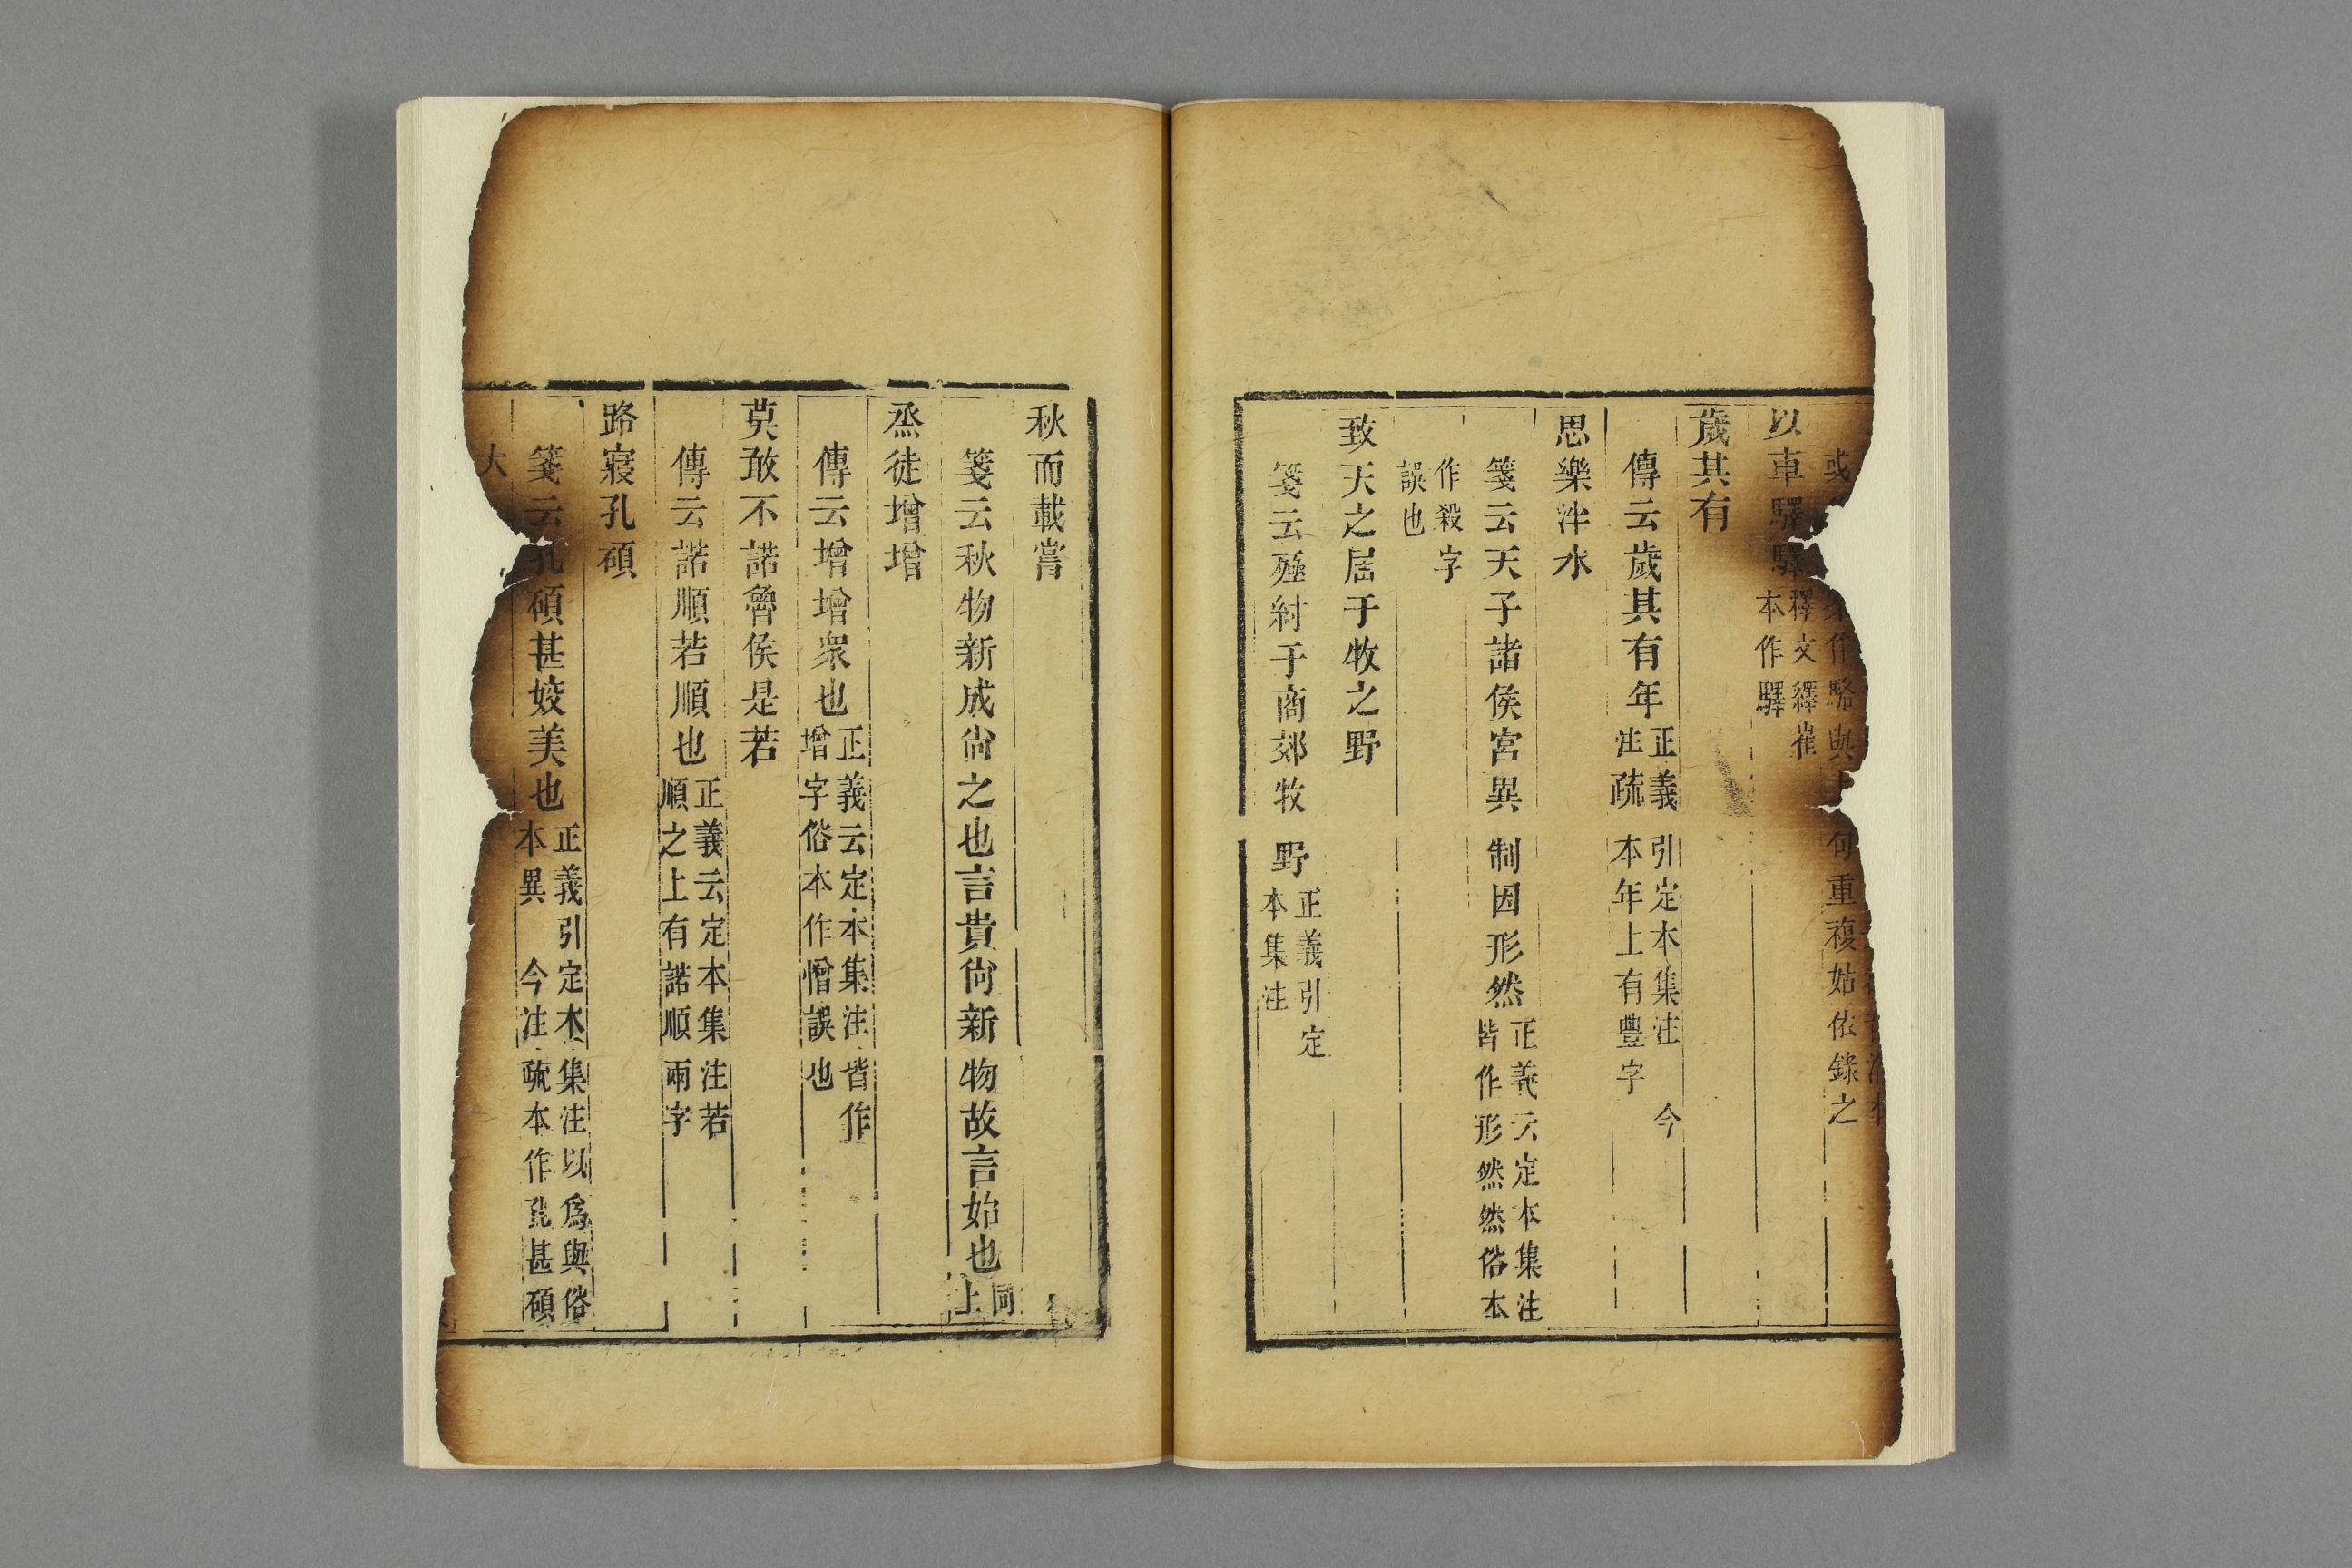 或 作駱與 句重複姑依錄之
以車驛驛釋文繹崔
本作驛
歲其有
傳云歲其有年正義引定本集注今
注疏本年上有豐字
思樂泮水
箋云天子諸侯宮異制因形然正義云定本集注
皆作形然然俗本
作殺字
誤也
致天之屆于牧之野
箋云殛紂于商郊牧野正義引定
本集注
秋而載嘗
箋云秋物新成尙之也言貴尙新物故言始也同
上
烝徒增增
傳云增增衆也正義云定本集注皆作
增字俗本作憎誤也
莫敢不諾魯侯是若
傳云諾順若順也正義云定本集注若
順之上有諾順兩字
路寢孔碩
箋云孔碩甚姣美也正義引定本集注以爲與俗
本異今注疏本作孔甚碩
大